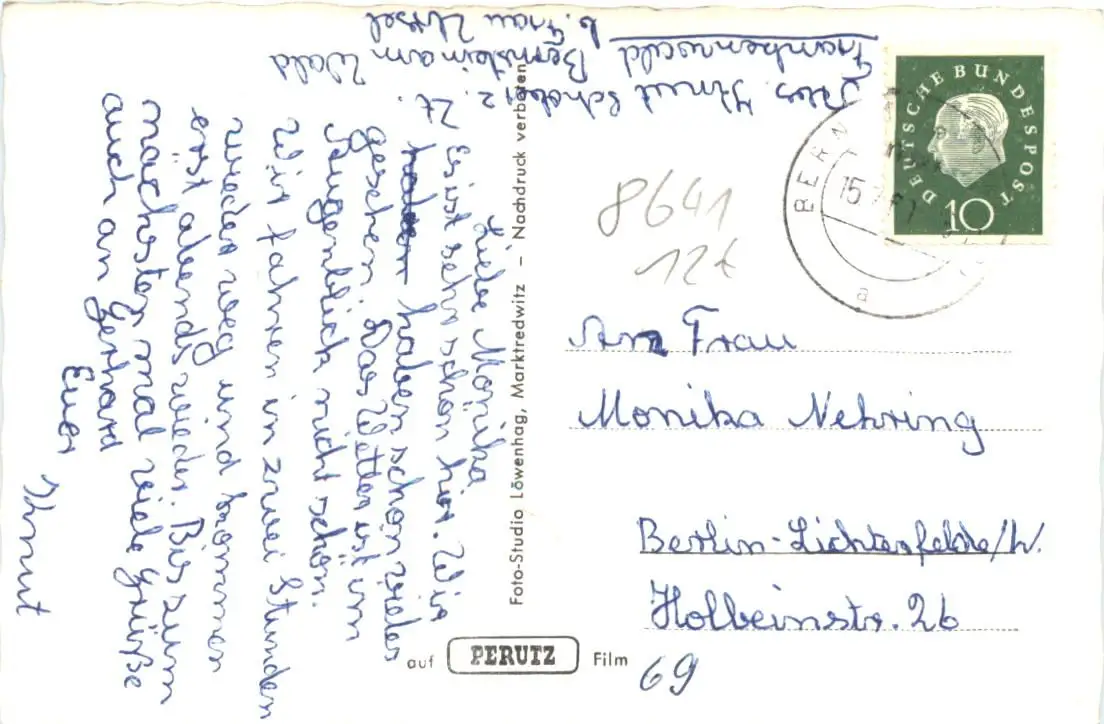 Abs. Ihnut Scholz z. Zt.
Bernstein am Wald
Frankenwald
b. Frau Ursel
Liebe Monika
Es ist sehr schön hier. Wir
haben haben schon vieles
gesehen. Das Wetter ist im
Augenblick nicht schön.
Wir fahren in zwei Stunden
wieder weg und kommen
erst abends wieder. Bis zum
nächsten mal viele Grüße
auch an Gerhard
Euer
Ihnut
Foto-Studio Löwenhag, Marktredwitz – Nachdruck verboten
auf PERUTZ Film
DEUTSCHE BUNDESPOST
10
BERN
15
a
8641
12t
An Frau
Monika Nehring
Berlin-Lichterfelde/W.
Holbeinstr. 26
69